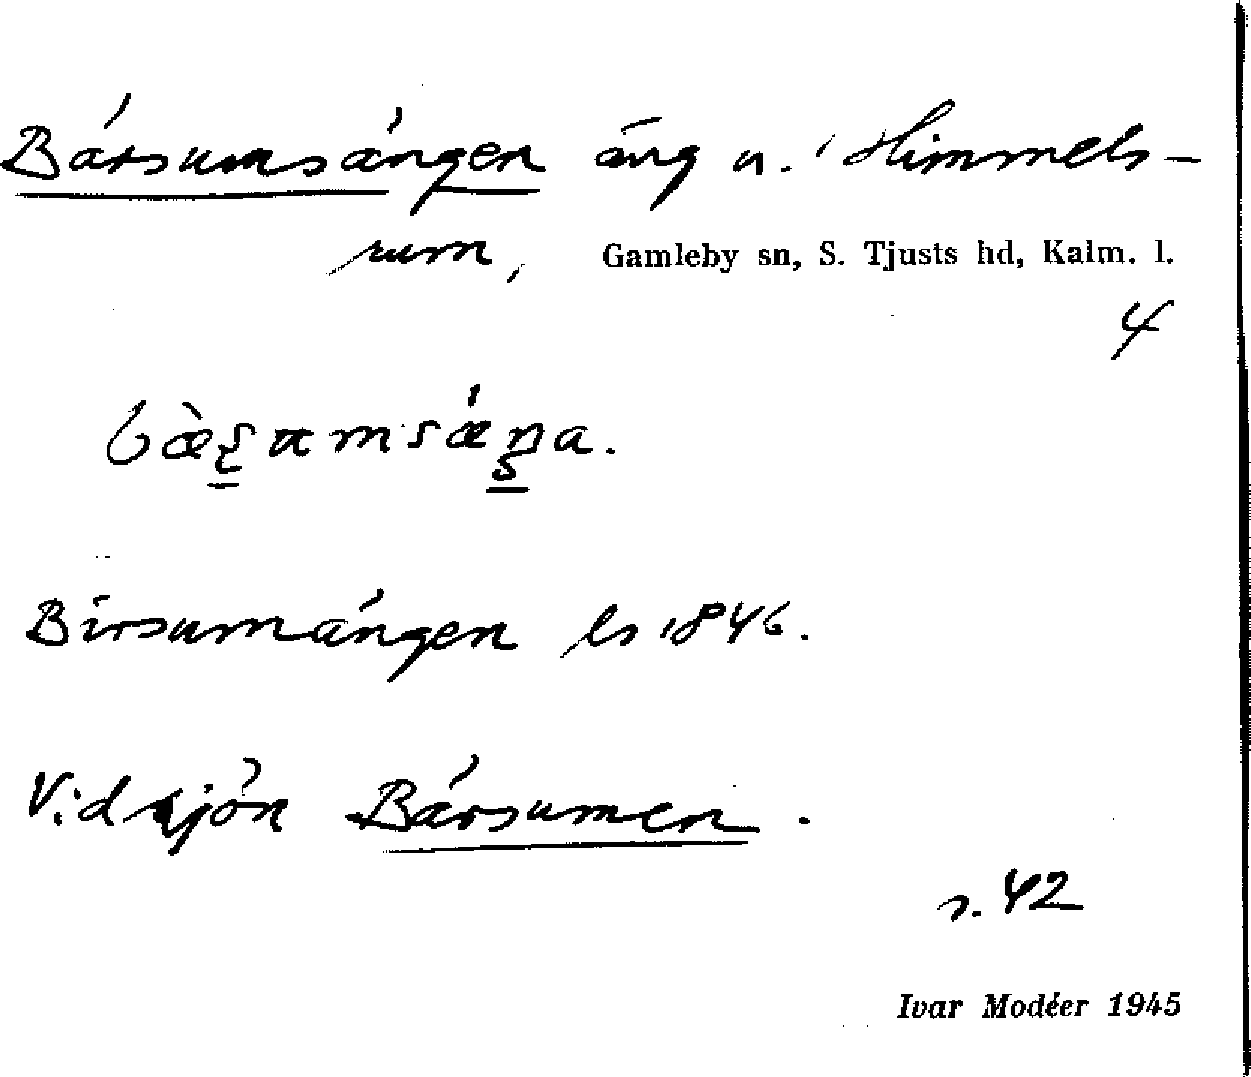 Bärsumsängen äng u. Himmels-
rum, Gamleby sn, S. Tjusts hd, Kalm. l.
4
Birsumängen ls 1846.
Vid sjön Bärsumen.
s. 42
Ivar Modéer 1945